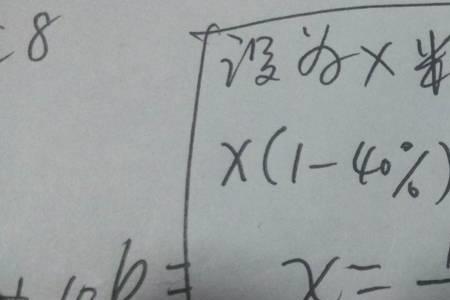 : 8
设为x
x(1-40%)
x =
b =